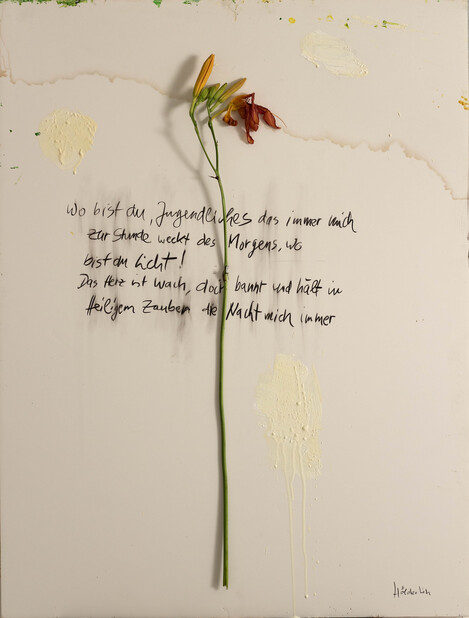 Wo bist du, Jugendliches das immer mich
zur Stunde weckt des Morgens, wo
bist du Licht!
Das Herz ist wach, doch bannt und hält in
Heiligem Zauber die Nacht mich immer
Hölderlin